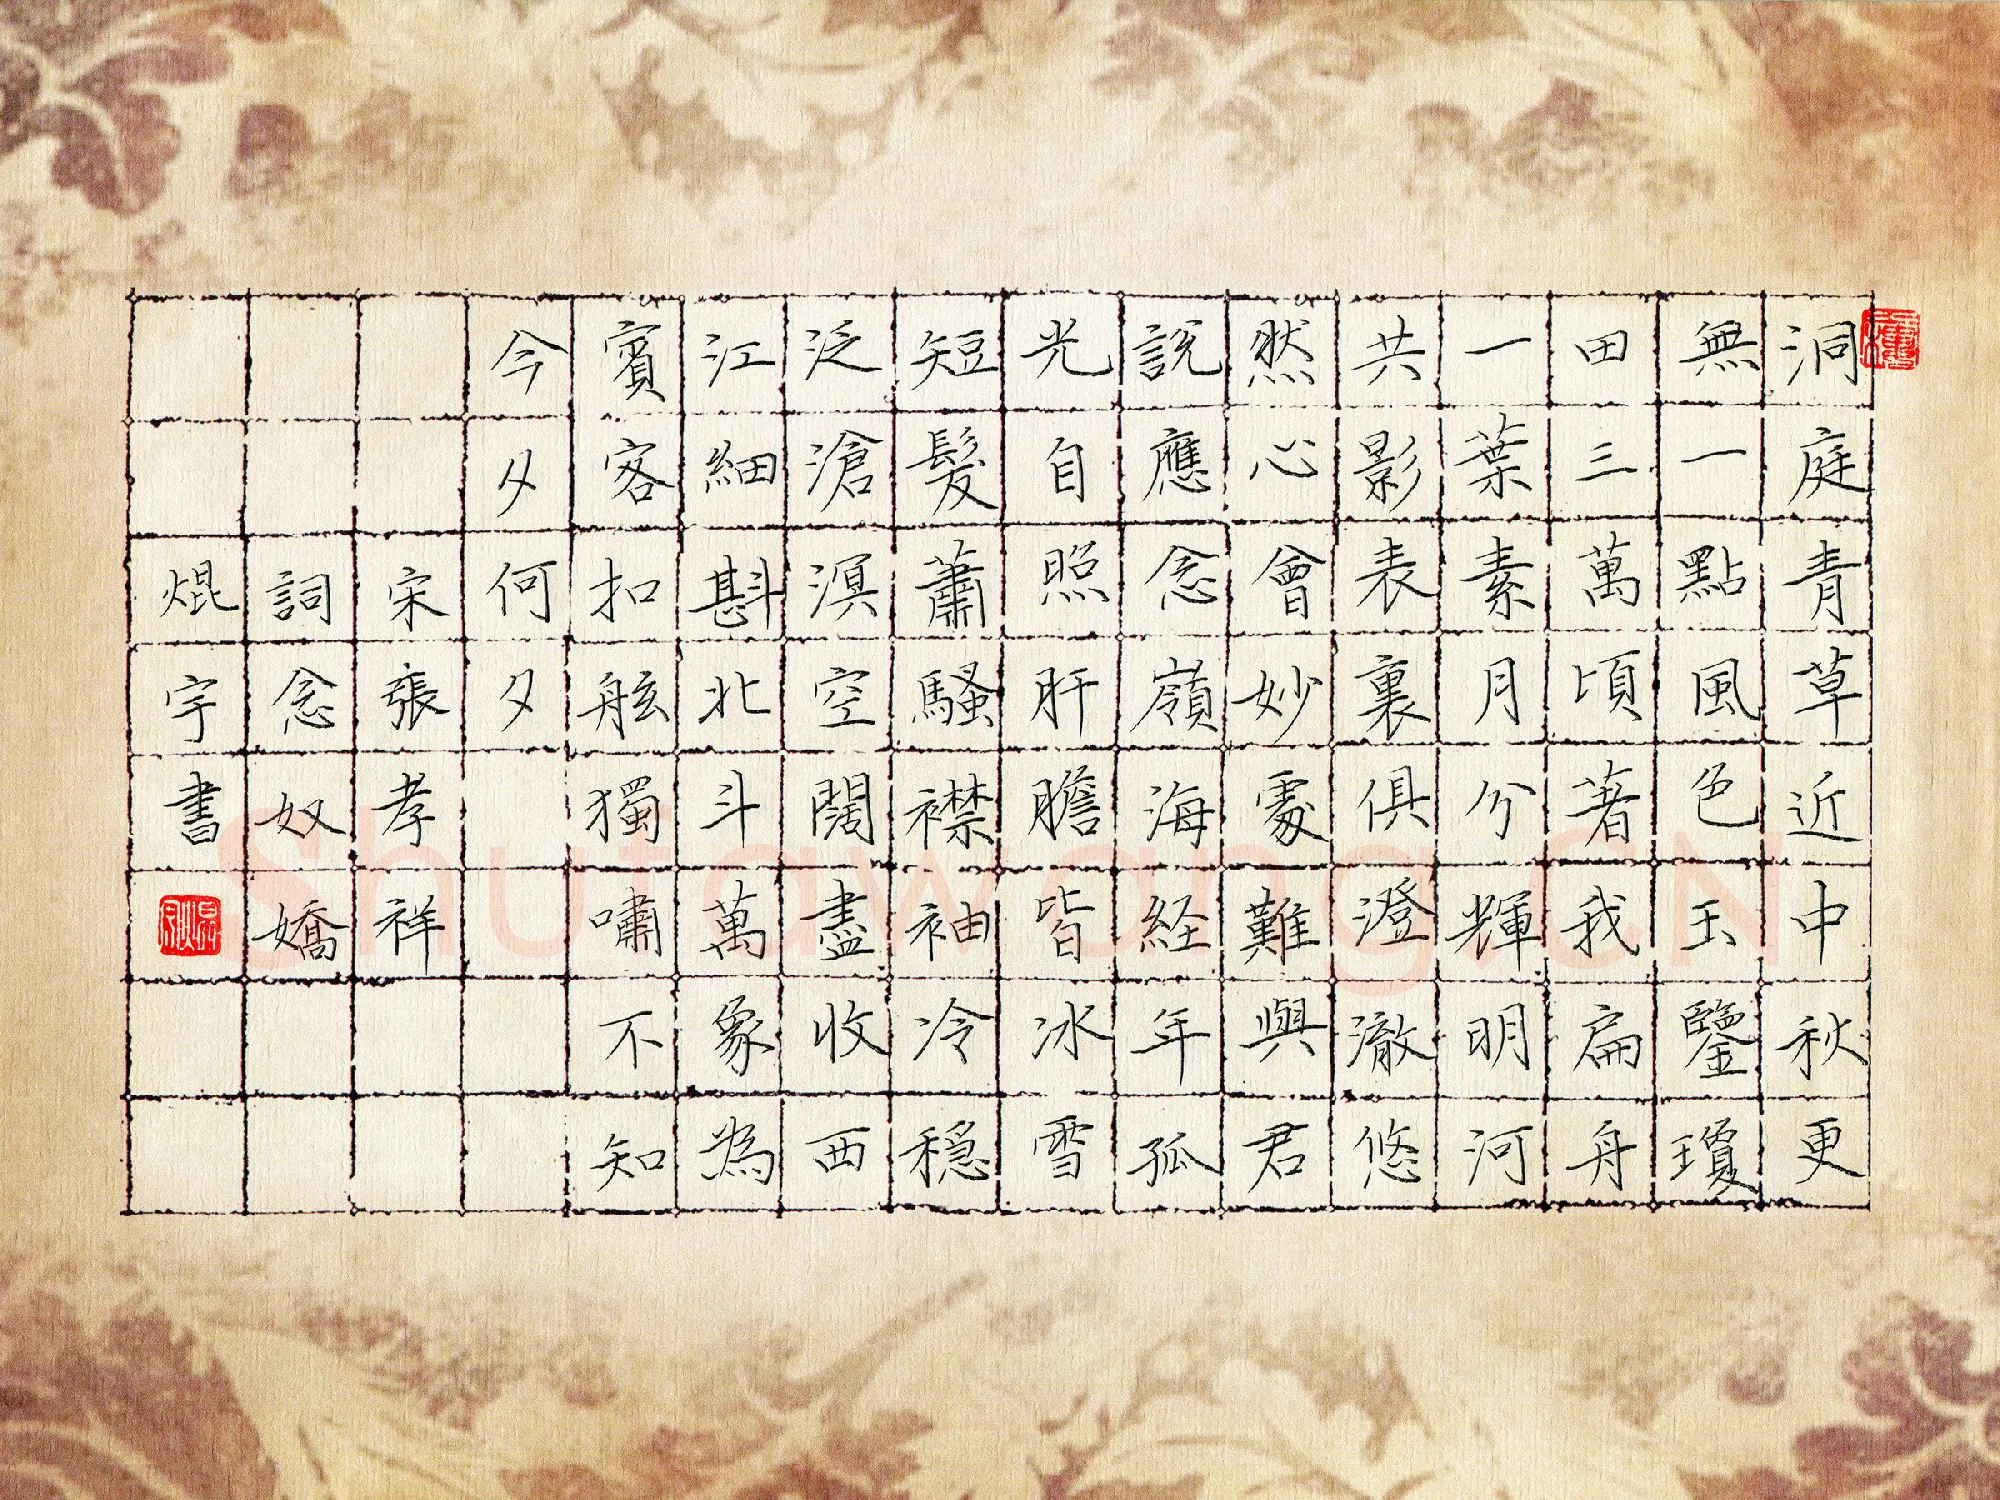 洞庭青草近中秋更
無一點風色玉鑒瓊
田三萬頃著我扁舟
一葉素月分輝明河
共影表裏俱澄澈悠
然心會妙處難與君
說應念嶺海経年孤
光自照肝膽皆冰雪
短髮蕭騷襟袖冷穩
泛滄溟空闊盡收西
江細斟北斗萬象為
賓客扣舷獨嘯不知
今夕何夕
宋張孝祥
詞念奴嬌
焜宇書